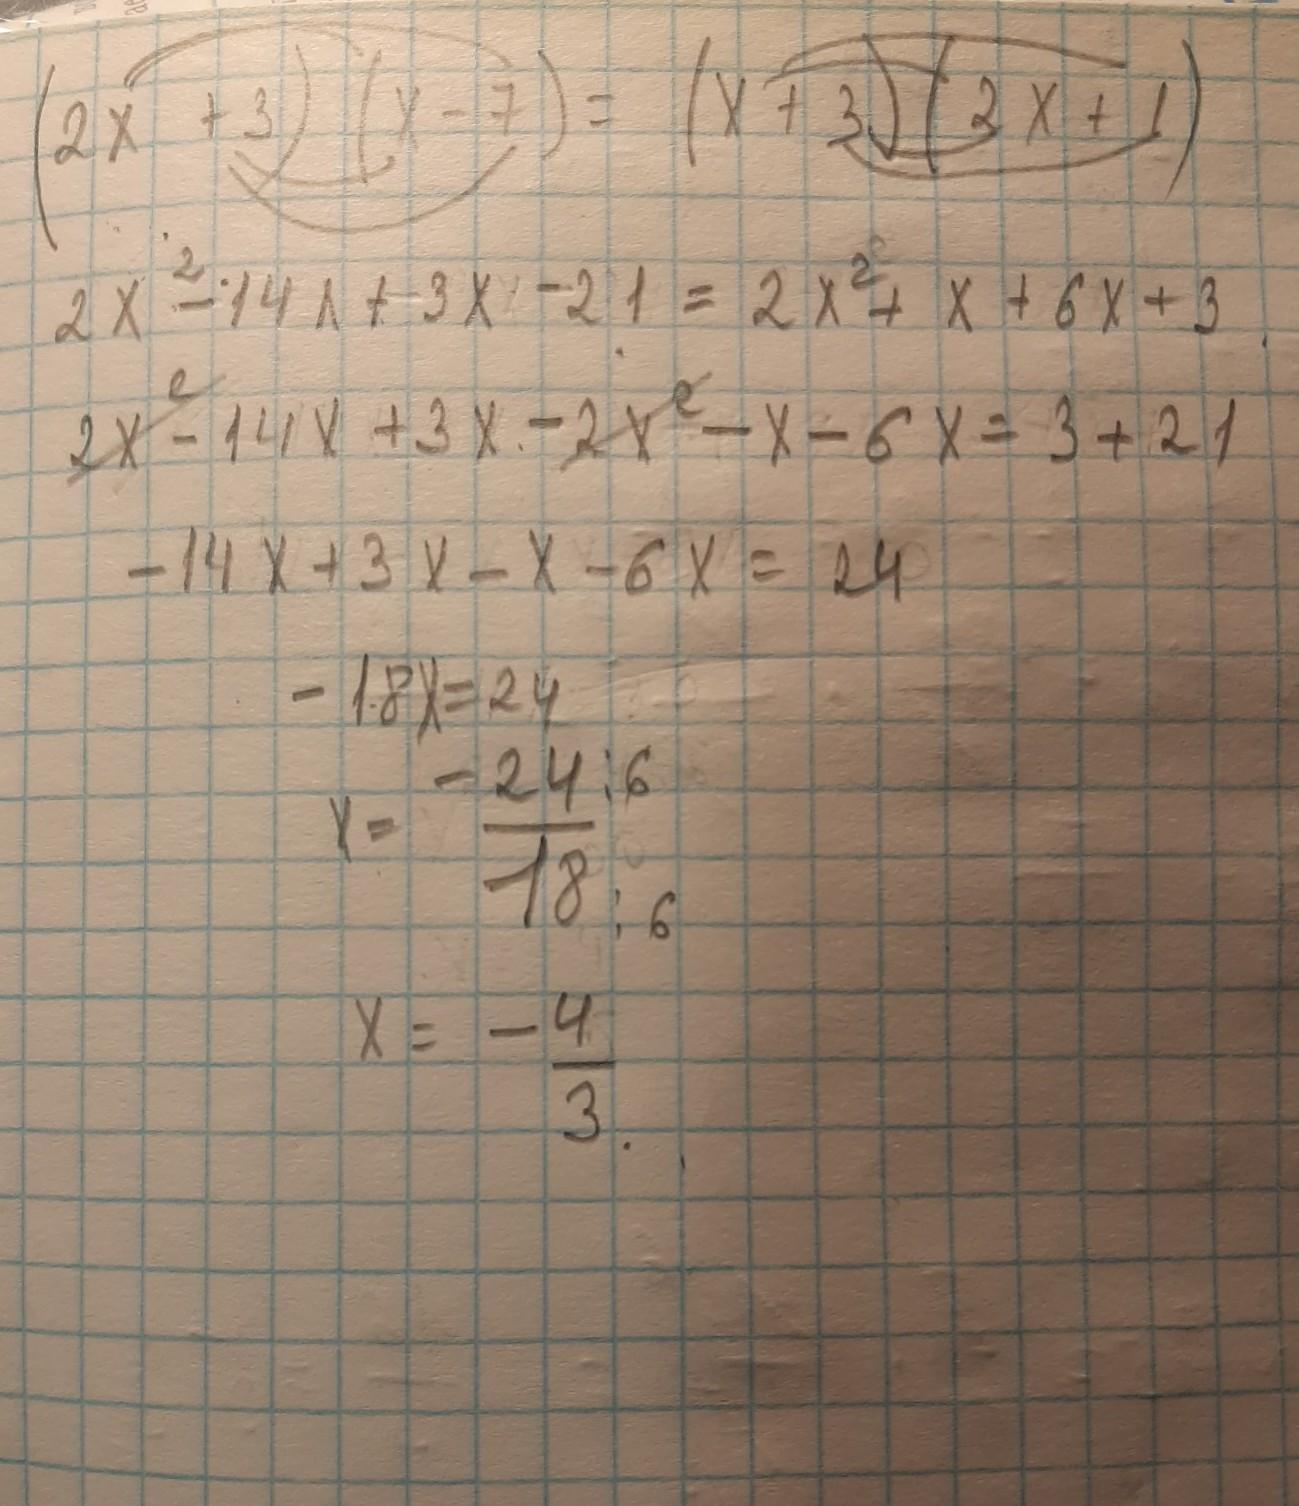 (2x + 3) (x - 7) = (x + 3) (2x + 1)
2x² - 14x + 3x - 21 = 2x² + x + 6x + 3
2x² - 14x + 3x - 2x² - x - 6x = 3 + 21
-14x + 3x - x - 6x = 24
-18x = 24
x = -24:6/18:6
x = -4/3.